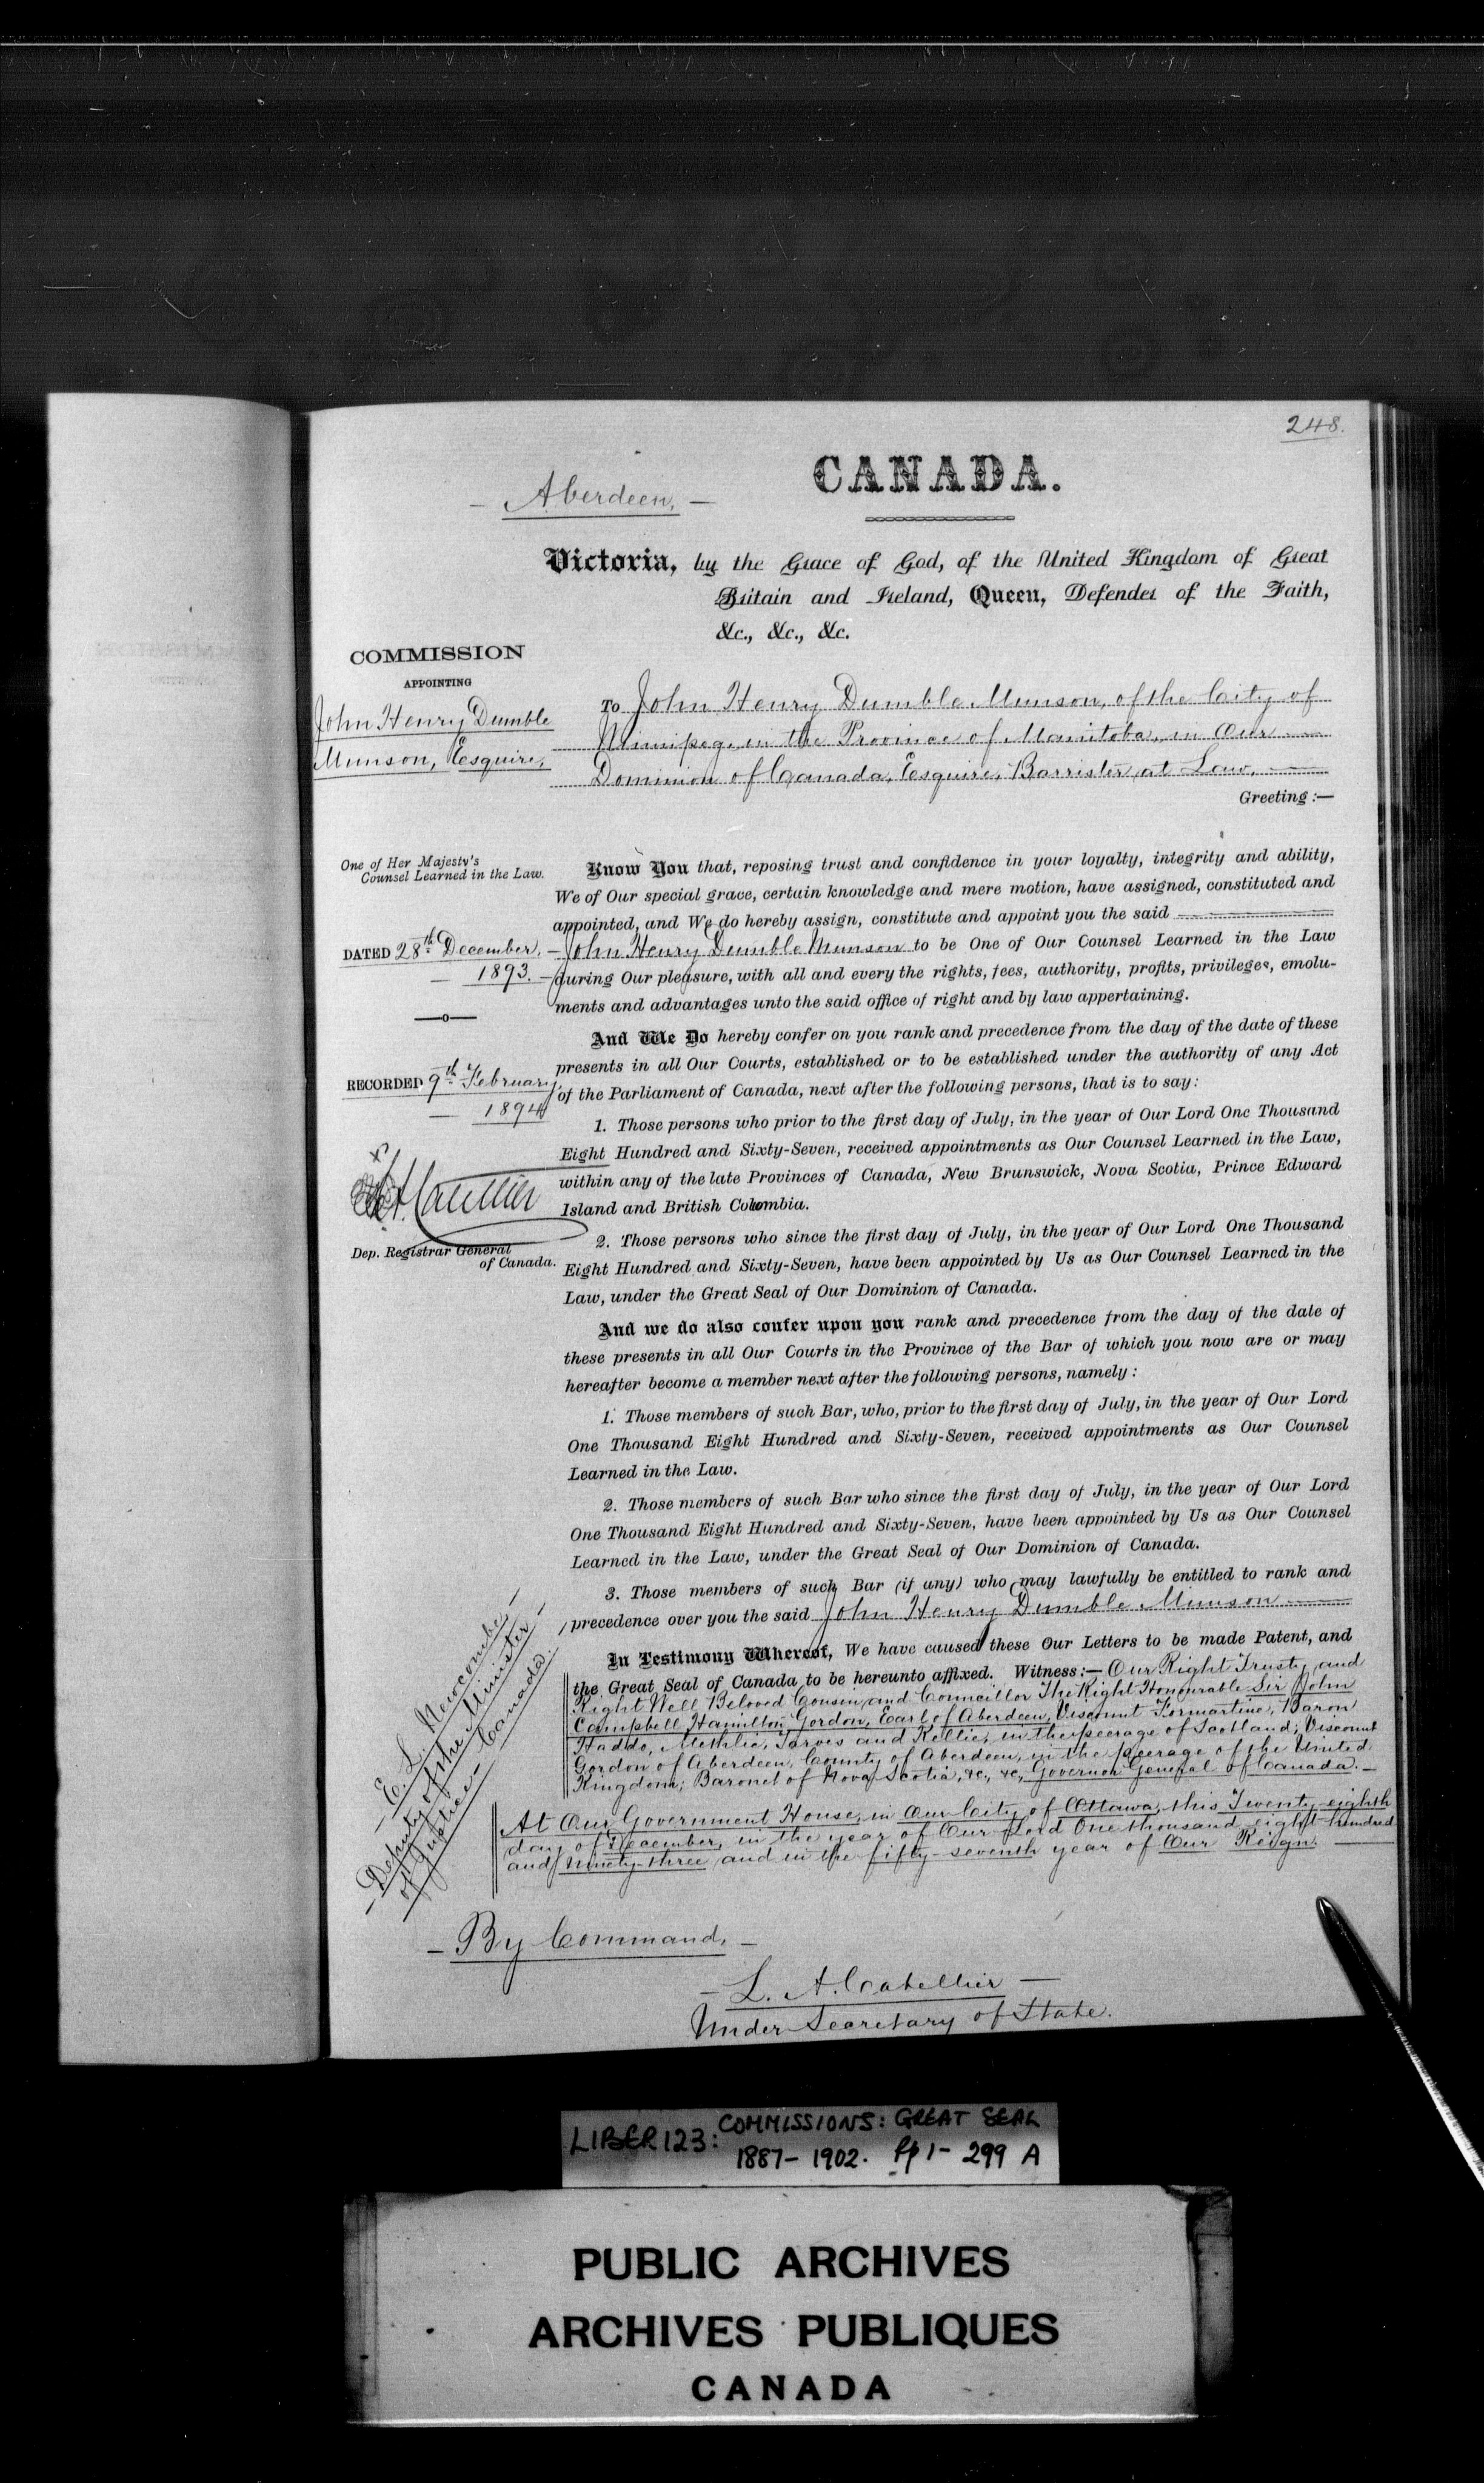 248.
CANADA.
- Aberdeen, -
Victoria, by the Grace of God, of the United Kingdom of Great
Britain and Ireland, Queen, Defender of the Faith,
&c., &c., &c.
COMMISSION
APPOINTING
John Henry Dumble
Munson, Esquire,
One of Her Majesty's
Counsel Learned in the Law.
DATED 28th December,
- 1893. -
—o—
RECORDED 9th February,
- 1894
Dep. Registrar General
of Canada.
To John Henry Dumble Munson, of the City of
Winnipeg, in the Province of Manitoba, in Our
Dominion of Canada, Esquire, Barrister at Law, —
Greeting :—
Know You that, reposing trust and confidence in your loyalty, integrity and ability,
We of Our special grace, certain knowledge and mere motion, have assigned, constituted and
appointed, and We do hereby assign, constitute and appoint you the said
- John Henry Dumble Munson to be One of Our Counsel Learned in the Law
during Our pleasure, with all and every the rights, fees, authority, profits, privileges, emolu-
ments and advantages unto the said office of right and by law appertaining.
And We Do hereby confer on you rank and precedence from the day of the date of these
presents in all Our Courts, established or to be established under the authority of any Act
of the Parliament of Canada, next after the following persons, that is to say:
1. Those persons who prior to the first day of July, in the year of Our Lord One Thousand
Eight Hundred and Sixty-Seven, received appointments as Our Counsel Learned in the Law,
within any of the late Provinces of Canada, New Brunswick, Nova Scotia, Prince Edward
Island and British Columbia.
2. Those persons who since the first day of July, in the year of Our Lord One Thousand
Eight Hundred and Sixty-Seven, have been appointed by Us as Our Counsel Learned in the
Law, under the Great Seal of Our Dominion of Canada.
And we do also confer upon you rank and precedence from the day of the date of
these presents in all Our Courts in the Province of the Bar of which you now are or may
hereafter become a member next after the following persons, namely :
1. Those members of such Bar, who, prior to the first day of July, in the year of Our Lord
One Thousand Eight Hundred and Sixty-Seven, received appointments as Our Counsel
Learned in the Law.
2. Those members of such Bar who since the first day of July, in the year of Our Lord
One Thousand Eight Hundred and Sixty-Seven, have been appointed by Us as Our Counsel
Learned in the Law, under the Great Seal of Our Dominion of Canada.
3. Those members of such Bar (if any) who may lawfully be entitled to rank and
precedence over you the said John Henry Dumble Munson
In Testimony Whereof, We have caused these Our Letters to be made Patent, and
the Great Seal of Canada to be hereunto affixed. Witness:— Our Right Trusty and
Right Well Beloved Cousin and Councillor The Right Honourable Sir John
Campbell Hamilton Gordon, Earl of Aberdeen, Viscount Formartine, Baron
Haddo, Methlic, Tarves and Kellie, in the peerage of Scotland; Viscount
Gordon of Aberdeen, County of Aberdeen, in the peerage of the United
Kingdom; Baronet of Nova Scotia, &c., &c., Governor General of Canada. -
At Our Government House, in Our City of Ottawa, this Twenty-eighth
day of December, in the year of Our Lord One thousand eight hundred
and ninety-three and in the fifty-seventh year of Our Reign.
- E. L. Newcombe, -
- Deputy of the Minister -
of Justice - Canada.
- By Command, -
- L. A. Catellier -
Under Secretary of State.
LIBER 123: COMMISSIONS: GREAT SEAL
1887- 1902. Pp 1- 299 A
PUBLIC ARCHIVES
ARCHIVES PUBLIQUES
CANADA